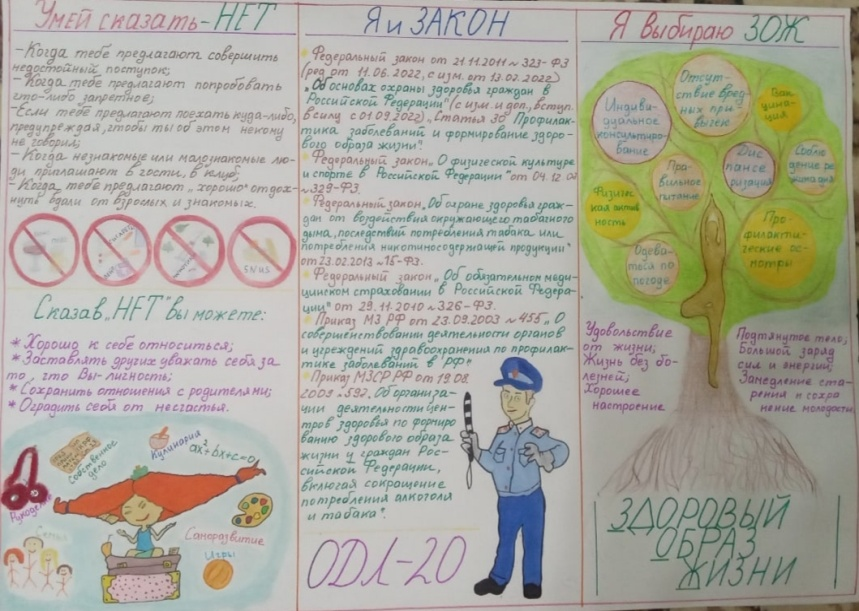 Умей сказать-НЕТ
-Когда тебе предлагают совершить
недостойный поступок;
-Когда тебе предлагают попробовать
что-либо запретное;
-Если тебе предлагают поехать куда-либо,
предупреждая, чтобы ты об этом некому
не говорил;
-Когда незнакомые или малознакомые лю-
ди приглашают в гости, в клуб;
-Когда тебе предлагают „хорошо" отдох-
нуть вдали от взрослых и знакомых.
SNUS
Сказав „НЕТ" Вы можете:
* Хорошо к себе относиться;
* Заставлять других уважать себя за
то, что Вы-личность;
* Сохранить отношения с родителями;
* Оградить себя от несчастья.
Рукоделие
Собственное
дело
Кулинария
ax²+bx+c=0
Семья
Саморазвитие
Игры
Я и ЗАКОН
Федеральный закон от 21.11.2011 ~ 323-ФЗ
(ред. от 11.06.2022, с изм. от 13.07.2022)
„Об основах охраны здоровья граждан в
Российской Федерации" (с изм. и доп., вступ.
в силу с 01.09.2022) „Статья 30 Профилак-
тика заболеваний и формирование здоро-
вого образа жизни".
Федеральный закон „О физической культуре
и спорте в Российской Федерации" от 04.12.07
~329-ФЗ.
Федеральный закон „Об охране здоровья граж-
дан от воздействия окружающего табачного
дыма, последствий потребления табака или
потребления никотиносодержащей продукции"
от 23.02.2013 ~15-ФЗ.
Федеральный закон „Об обязательном меди-
цинском страховании в Российской Федера-
ции" от 29.11.2010 ~326-ФЗ.
Приказ МЗ РФ от 23.09.2003 ~455 „О
совершенствовании деятельности органов
и учреждений здравоохранения по профилак-
тике заболеваний в РФ"
Приказ МЗСР РФ от 19.08.
2009 ~597 „Об организа-
ции деятельности цен-
тров здоровья по формиро
ванию здорового образа
жизни у граждан Рос-
сийской Федерации,
включая сокращение
потребления алкоголя
и табака".
ОДЛ-20
Я выбираю ЗОЖ
Индиви-
дуальное
консультиро-
вание
Отсут-
ствие вред-
ных при
вычек
Вак
цина-
ция
Пра-
вильное
питание
Дис
пансе-
ризация
Соблю
дение ре
жима дня
Физиче
кая актив
ность
Одева-
ться по
погоде
Про-
филакти-
ческие ос-
мотры
Удовольствие
от жизни;
Жизнь без бо-
лезней;
Хорошее
настроение
Подтянутое тело;
Большой заряд
сил и энергии;
Замедление ста-
рения и сохра
нение молодости
ЗДОРОВЫЙ
ОБРАЗ
ЖИЗНИ